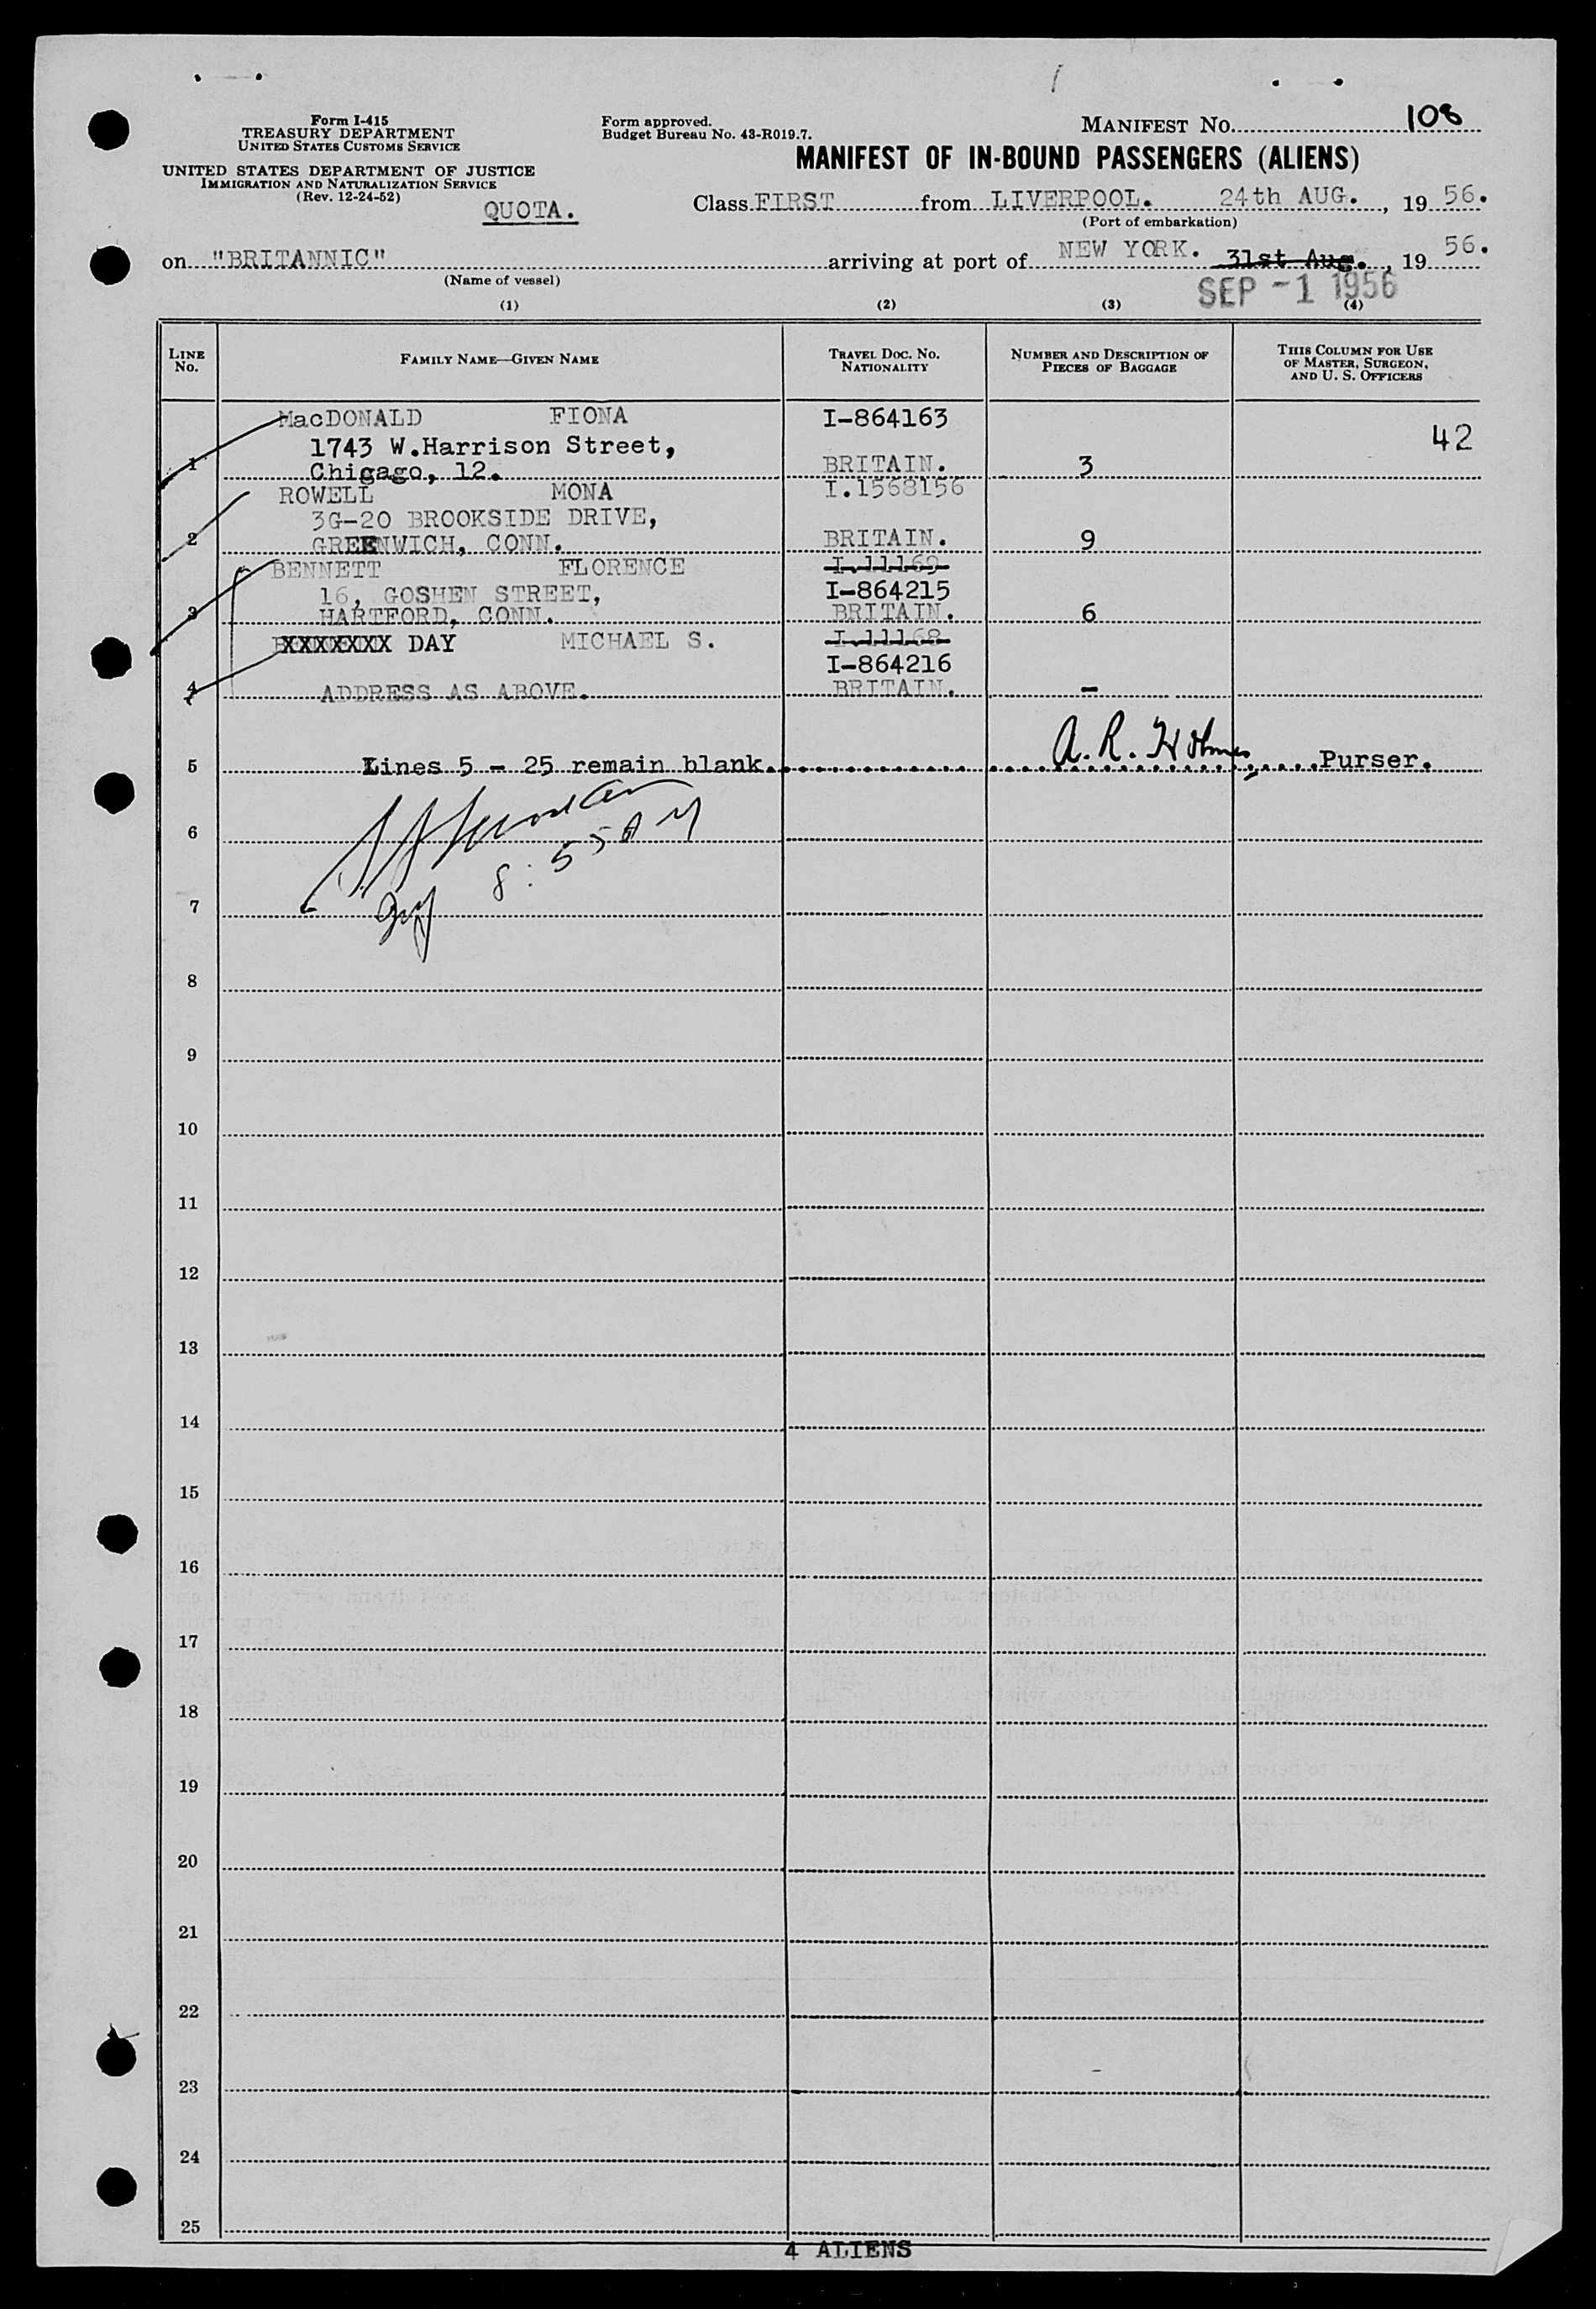 Form I-415
TREASURY DEPARTMENT
UNITED STATES CUSTOMS SERVICE
UNITED STATES DEPARTMENT OF JUSTICE
IMMIGRATION AND NATURALIZATION SERVICE
(Rev. 12-24-52)
QUOTA.
Form approved.
Budget Bureau No. 43-R019.7.
MANIFEST NO. 108
MANIFEST OF IN-BOUND PASSENGERS (ALIENS)
Class FIRST from LIVERPOOL. 24th AUG., 1956.
(Port of embarkation)
on "BRITANNIC" arriving at port of NEW YORK. 31st Aug., 1956.
(Name of vessel)
SEP -1 1956
(1) (2) (3) (4)
LINE No.
FAMILY NAME—GIVEN NAME
TRAVEL DOC. NO. NATIONALITY
NUMBER AND DESCRIPTION OF PIECES OF BAGGAGE
THIS COLUMN FOR USE OF MASTER, SURGEON, AND U. S. OFFICERS
MacDONALD FIONA I-864163
1743 W.Harrison Street, 42
1 Chigago, 12. BRITAIN. 3
ROWELL MONA I.1568156
3G-20 BROOKSIDE DRIVE,
2 GREENWICH, CONN. BRITAIN. 9
BENNETT FLORENCE I.11169
16, GOSHEN STREET, I-864215
3 HARTFORD, CONN. BRITAIN. 6
XXXXXXX DAY MICHAEL S. I.11168
I-864216
4 ADDRESS AS ABOVE. BRITAIN. -
5 Lines 5 - 25 remain blank. A. R. Holmes Purser.
6
8:55 AM
7
8
9
10
11
12
13
14
15
16
17
18
19
20
21
22
23
24
25
4 ALIENS